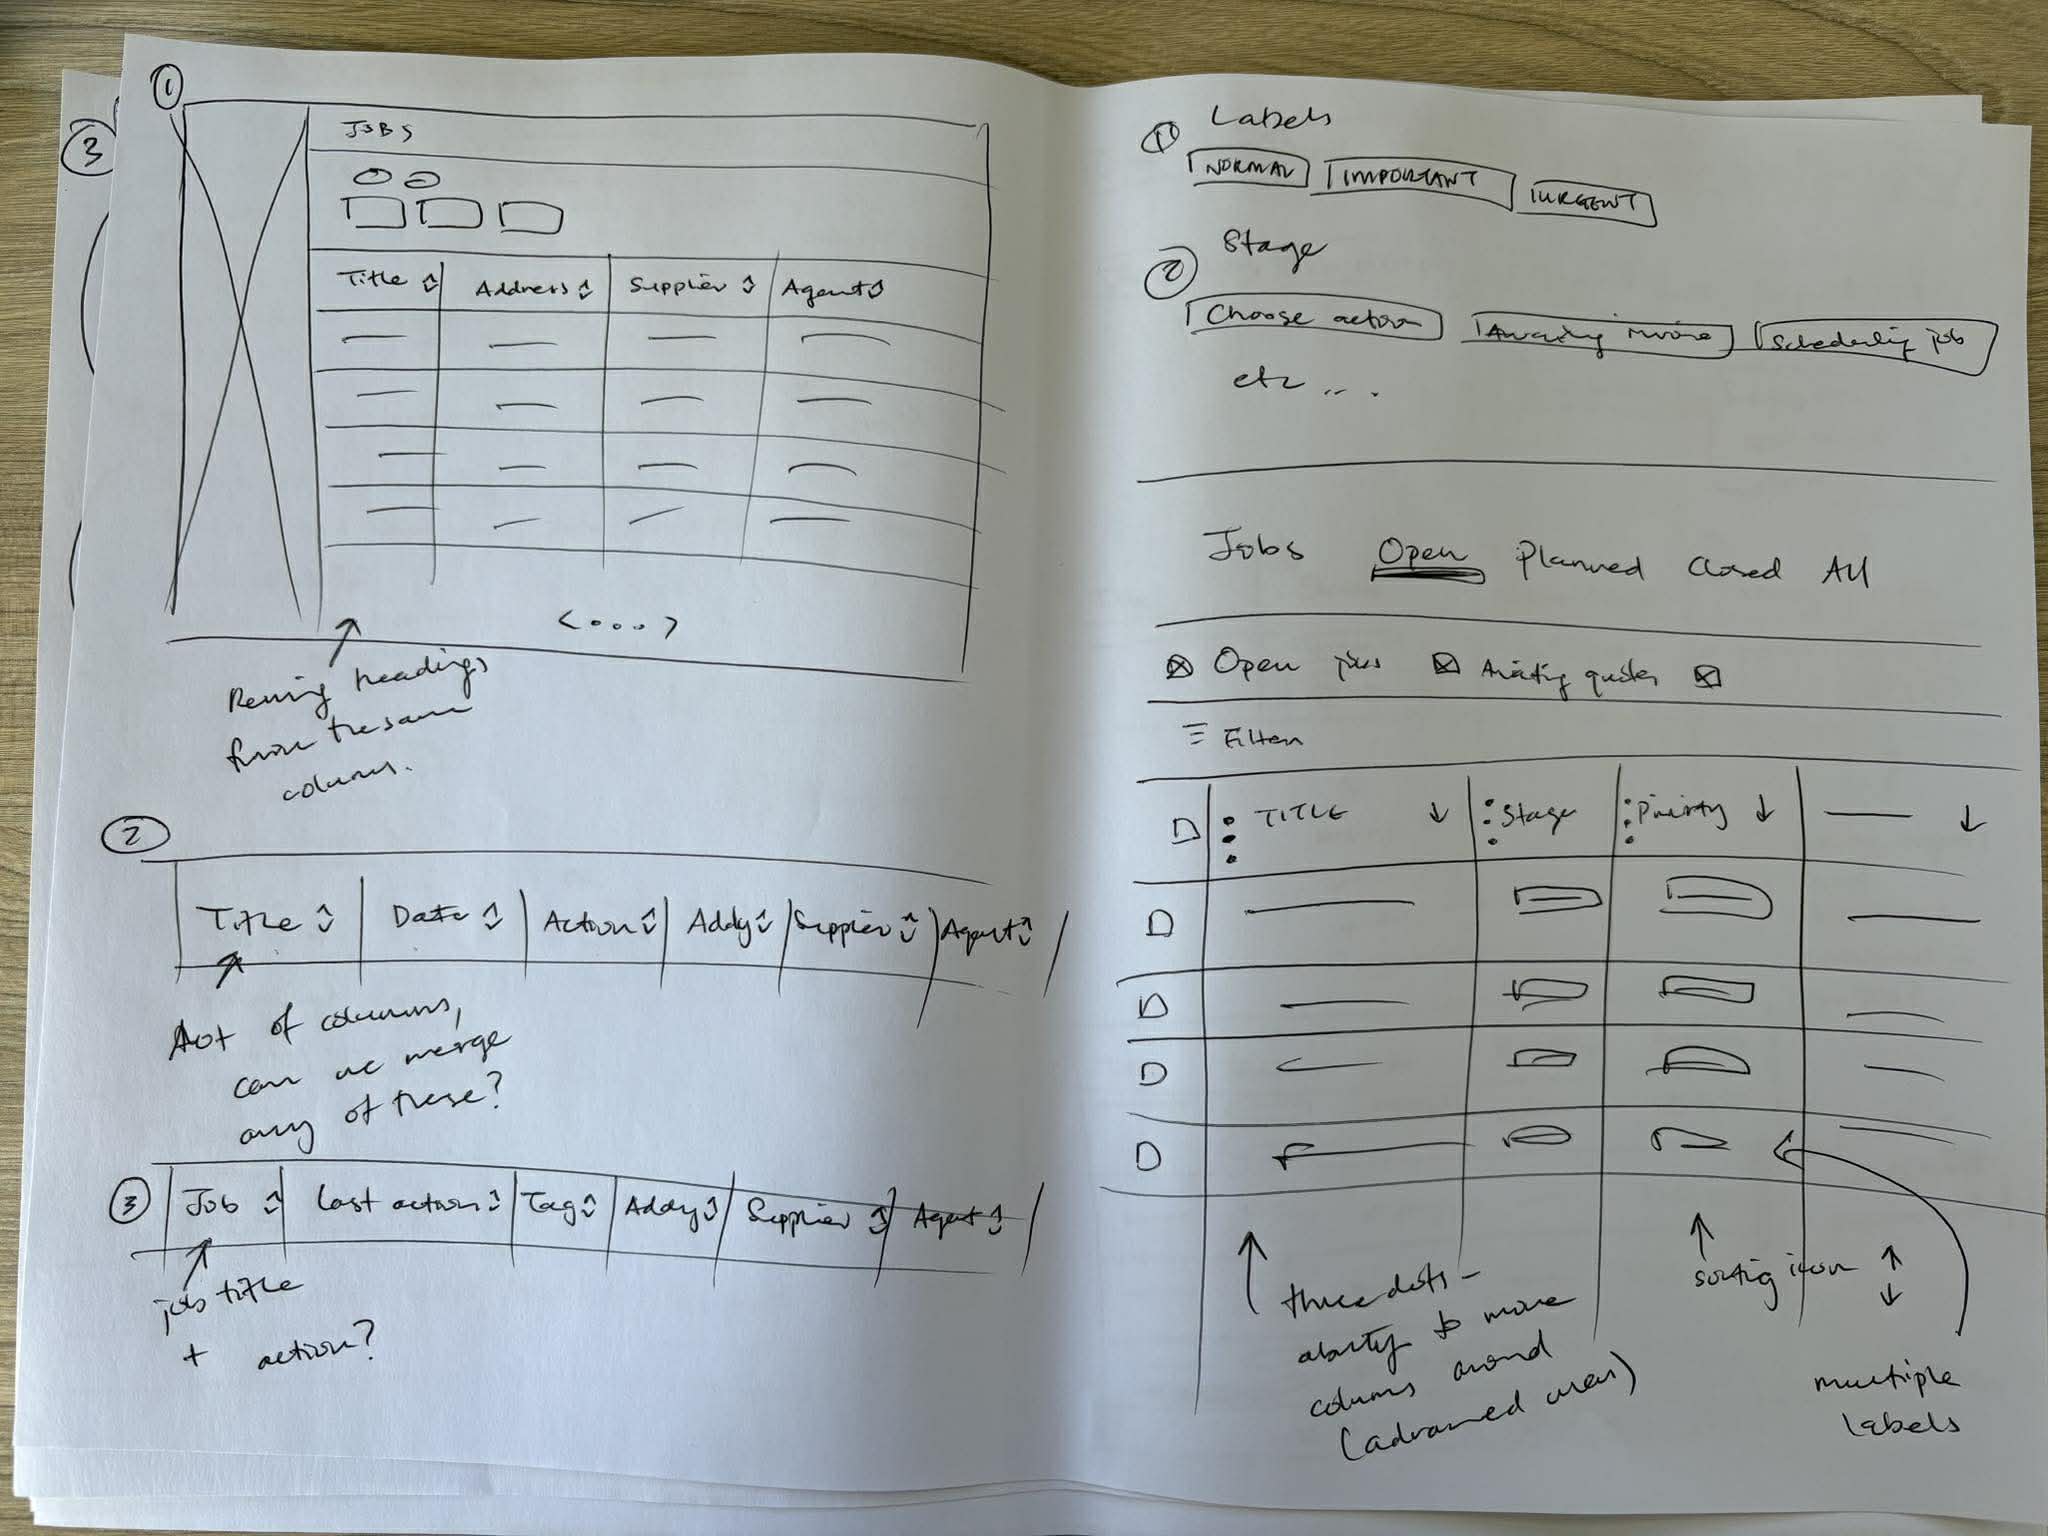 3
1
JOBS
Title Address Supplier Agent
< . . . >
headings
from the same
column.
2
Title Date Action Addy Supplier Agent
A lot of columns,
can we merge
any of these?
3
Job Last action Tag Addy Supplier Agent
job title
+ action?
1 Labels
NORMAL IMPORTANT URGENT
2 Stage
Choose action Awaiting Scheduling job
etc ...
Jobs Open Planned Closed All
Open jobs Awaiting quotes
Filter
TITLE Stage Priority
three dots -
ability to move
columns around
(advanced user)
sorting icon
multiple
labels